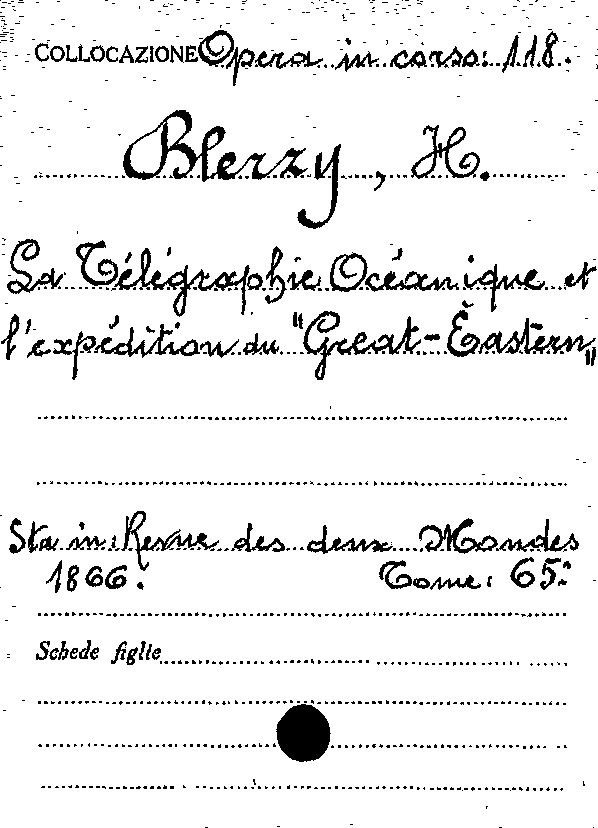 COLLOCAZIONE Opera in corso: 118.
Blerzy, H.
La Télégraphie Océanique et
l'expédition du "Great-Eastern"
Sta in: Revue des deux Mondes
1866. Tome: 65º
Schede figlie